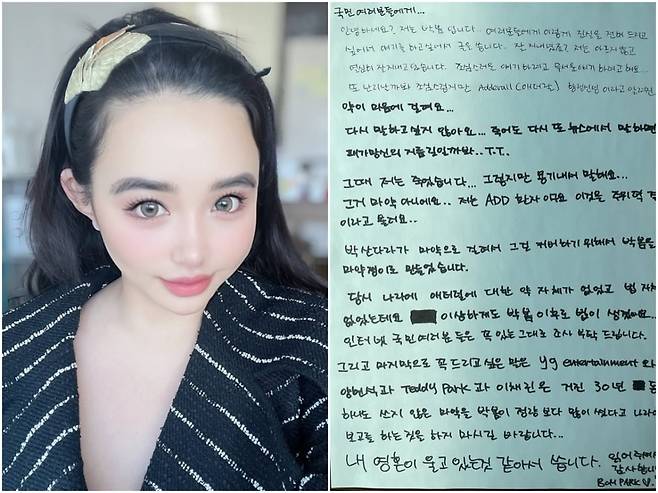 국민 여러분들에게...
안녕하세요? 저는 박봄 입니다.. 여러분들에게 이렇게 진심을 전해 드리고
싶어서 얘기를 하고싶어서 글을 씁니다. 잘 지내셨죠? 저는 아프지않고
열심히 잘지내고 있습니다. 조심스레도 얘기 하려고
또 난리날까봐 조심스럽지만 Adderall (애더랄)
약이 마음에 걸려요...
다시 말하고싶지 않아요... 죽어도 다시 또 뉴스에서 말하면
패가망신의 거름길일까봐.. T.T.
그때 저는 죽었습니다... 그렇지만 용기내서 말해요...
그거 마약 아니에요.. 저는 ADD 환자 이고요 이것을 주위력 결
이라고 불러요..
박산다라가 마약으로 걸려서 그걸 커버하기 위해서 박봄을
마약쟁이로 만들었습니다.
당시 나라에 애더랄에 대한 약 자체가 없었고 법 자
없었는데요 이상하게도 박봄 이후로 법이 생겼어요..
인터넷 국민 여러분 들은 꼭 있는그대로 조사 부탁 드립니다.
그리고 마지막으로 꼭 드리고 싶은 말은 yg entertainment 와
양현석과 Teddy Park 과 이채린 은 거진 30년 동
하나도 쓰지 않은 마약을 박봄이 정량 보다 많이 썼다고 나라에
보고를 하는 것을 하지 마시길 바랍니다...
내 영혼이 울고 있는것 같아서 씁니다. 읽어주셔
감사합니
BOM PARK ♡.